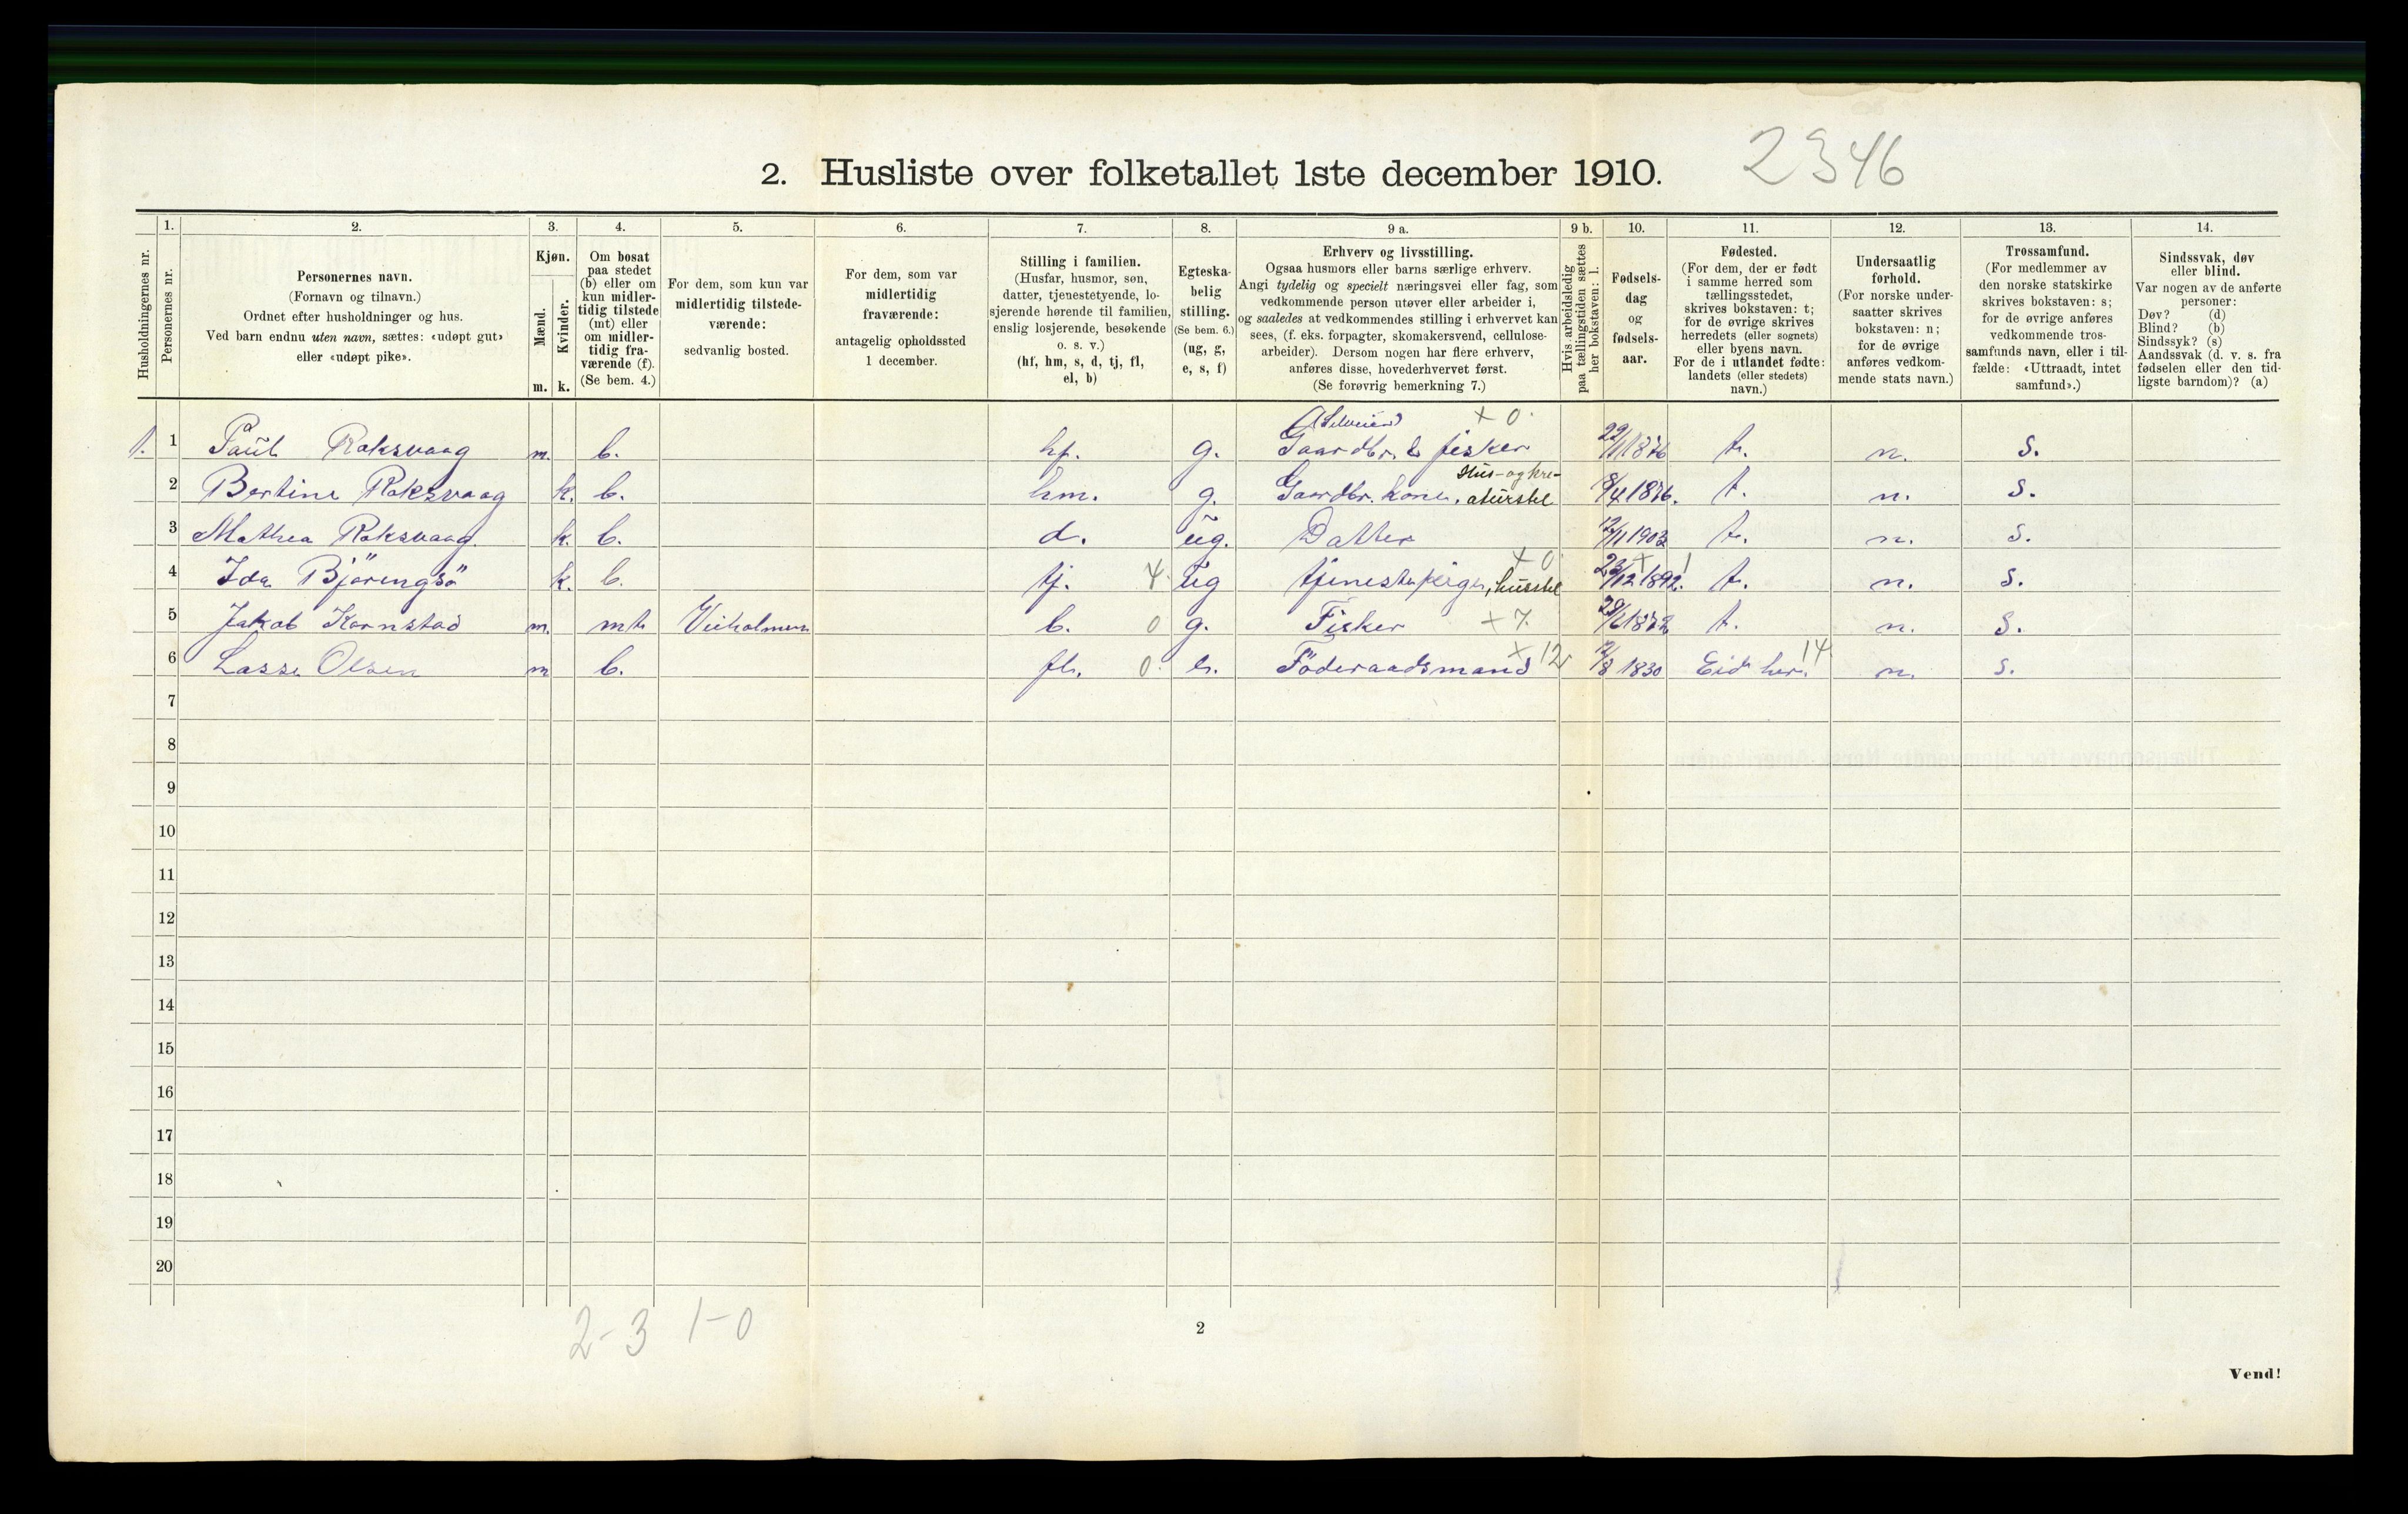 2. Husliste over folketallet 1ste december 1910. 2346
1. 2. 3. 4. 5. 6. 7. 8. 9 a. 9 b. 10. 11. 12. 13. 14.
Husholdningernes nr.
Personernes nr.
Personernes navn.
(Fornavn og tilnavn.)
Ordnet efter husholdninger og hus.
Ved barn endnu uten navn, sættes: «udøpt gut»
eller «udøpt pike».
Kjøn.
Mænd.
Kvinder.
m. k.
Om bosat
paa stedet
(b) eller om
kun midler-
tidig tilstede
(mt) eller
om midler-
tidig fra-
værende (f).
(Se bem. 4.)
For dem, som kun var
midlertidig tilstede-
værende:
sedvanlig bosted.
For dem, som var
midlertidig
fraværende:
antagelig opholdssted
1 december.
Stilling i familien.
(Husfar, husmor, søn,
datter, tjenestetyende, lo-
sjerende hørende til familien,
enslig losjerende, besøkende
o. s. v.)
(hf, hm, s, d, tj, fl,
el, b)
Egteska-
belig
stilling.
(Se bem. 6.)
(ug, g,
e, s, f)
Erhverv og livsstilling.
Ogsaa husmors eller barns særlige erhverv.
Angi tydelig og specielt næringsvei eller fag, som
vedkommende person utøver eller arbeider i,
og saaledes at vedkommendes stilling i erhvervet kan
sees, (f. eks. forpagter, skomakersvend, cellulose-
arbeider). Dersom nogen har flere erhverv,
anføres disse, hovederhvervet først.
(Se forøvrig bemerkning 7.)
Hvis arbeidsledig
paa tællingstiden sættes
her bokstaven: l.
Fødsels-
dag
og
fødsels-
aar.
Fødested.
(For dem, der er født
i samme herred som
tællingsstedet,
skrives bokstaven: t;
for de øvrige skrives
herredets (eller sognets)
eller byens navn.
For de i utlandet fødte:
landets (eller stedets)
navn.)
Undersaatlig
forhold.
(For norske under-
saatter skrives
bokstaven: n;
for de øvrige
anføres vedkom-
mende stats navn.)
Trossamfund.
(For medlemmer av
den norske statskirke
skrives bokstaven: s;
for de øvrige anføres
vedkommende tros-
samfunds navn, eller i til-
fælde: «Uttraadt, intet
samfund».)
Sindssvak, døv
eller blind.
Var nogen av de anførte
personer:
Døv? (d)
Blind? (b)
Sindssyk? (s)
Aandssvak (d. v. s. fra
fødselen eller den tid-
ligste barndom)? (a)
(Selveier) + 0
1. 1 Paul Roksvaag m. b. hf. g. Gaardbr. & fisker 22/11 1876 t. n. s.
Hus- og kre-
2 Bertine Roksvaag k. b. hm. g. Gaardbr. kone, aturstel 8/4 1876. t. n. s.
3 Mathea Roksvaag k. b. d. ug. Datter 12/11 1903 t. n. s.
+ 0 + 1
4 Ida Björingsö k. b. tj. 4 ug tjenestepige, husstel 23/12 1892. t. n. s.
5 Jakob Kornstad m. mt Veiholmen b. 0 g. Fisker + 7. t. n. s.
6 Lasse Olsen m b. fl. 0. e. Föderaadsmand + 12 12/8 1830 Eid her. 14 n. s.
7
8
9
10
11
12
13
14
15
16
17
18
19
20
2-3 1-0
2
Vend!